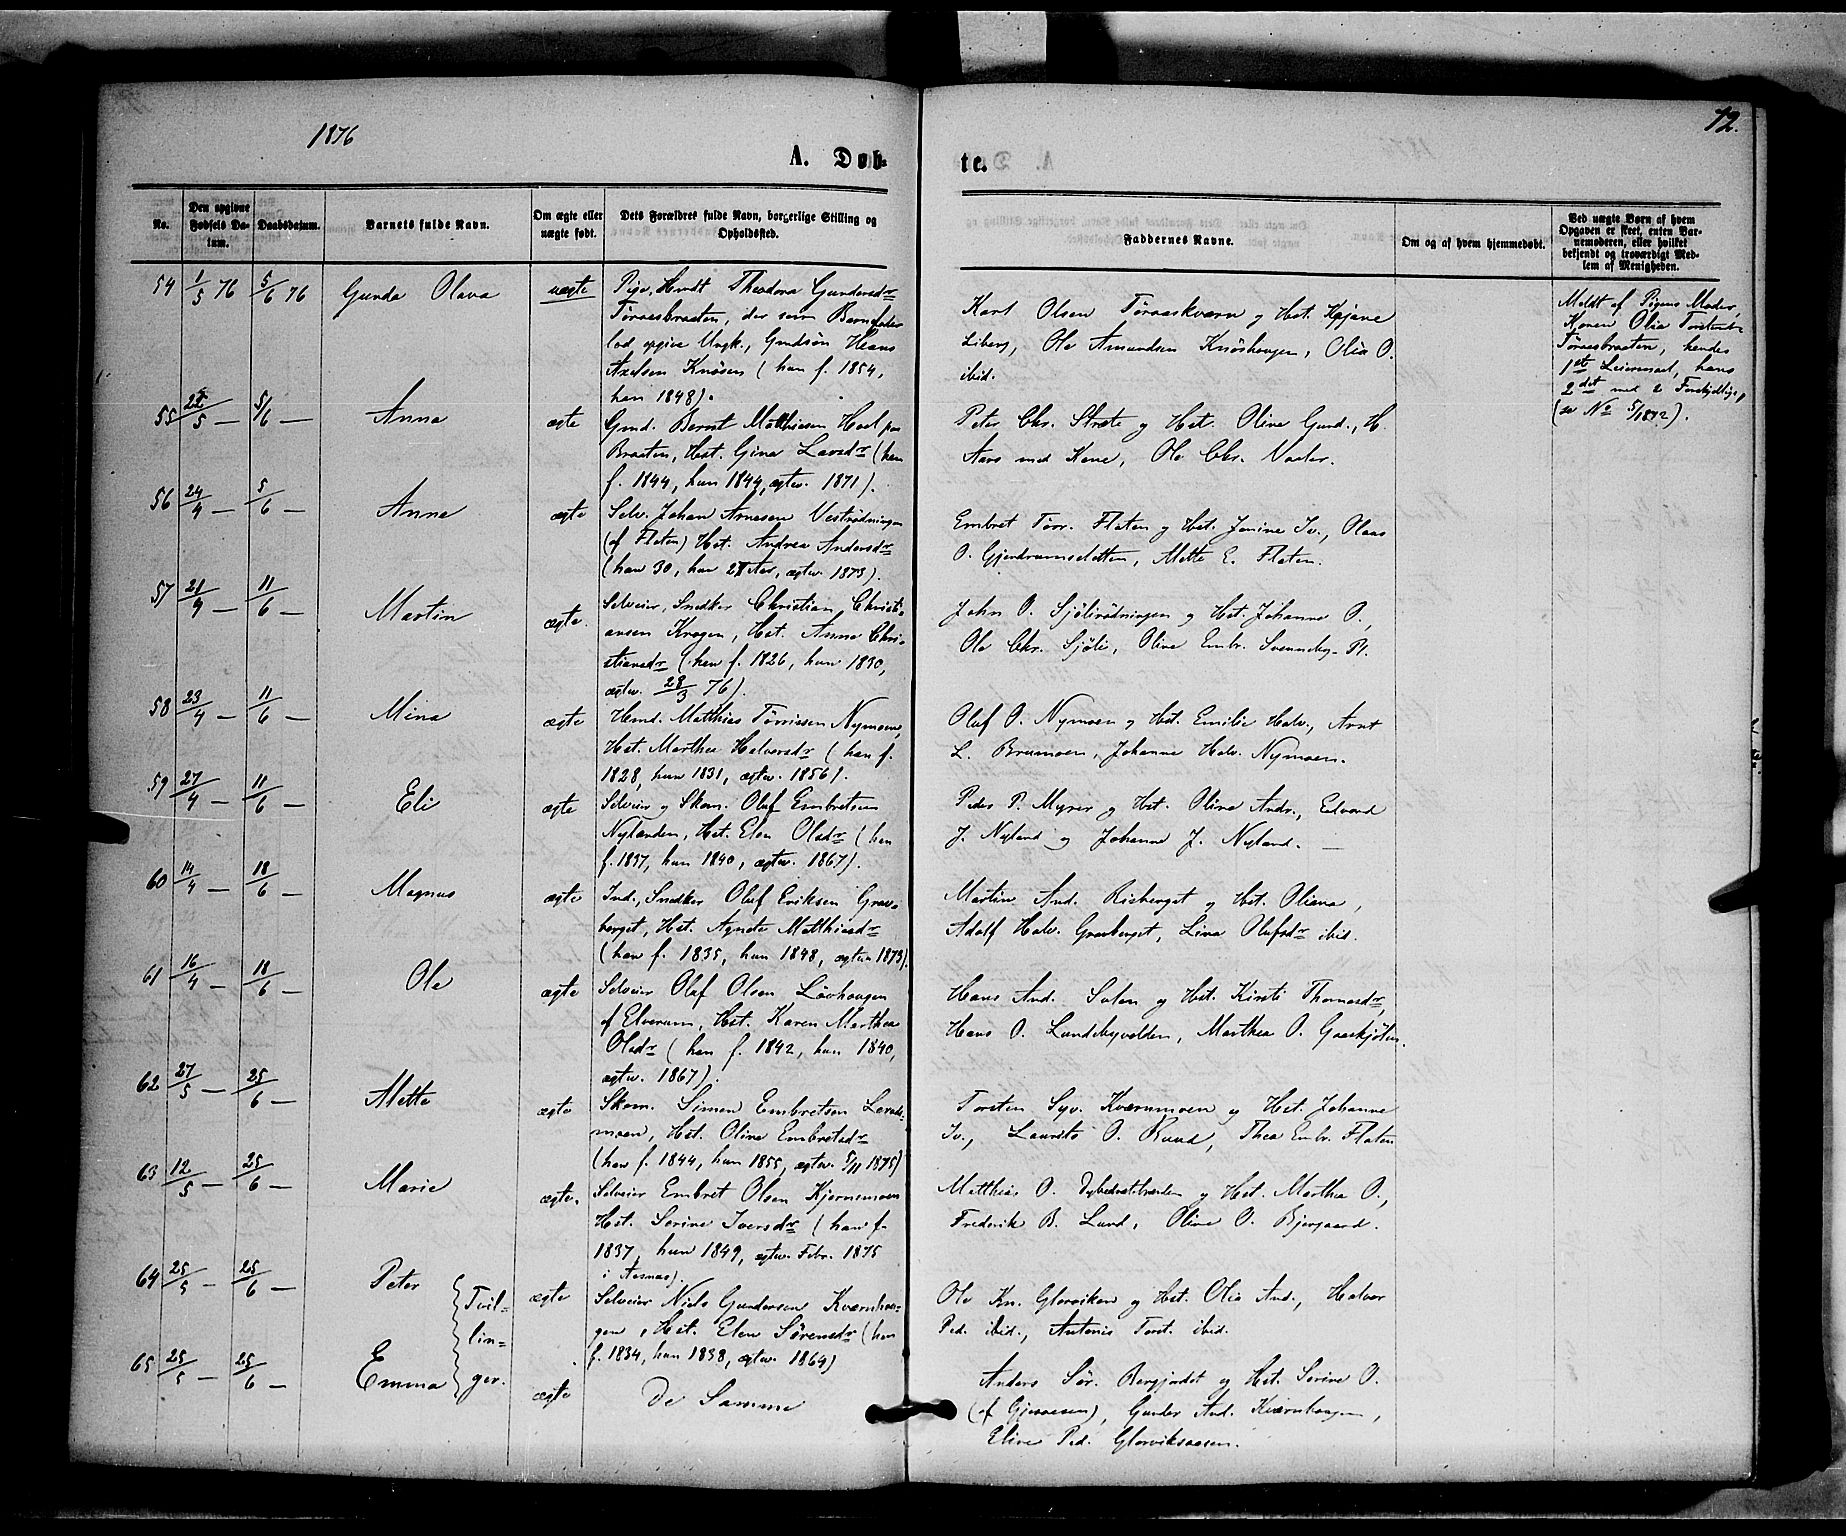 1876
12.
A. Døb-
te.
No.
Den opgivne Fødsels Da-tum.
Daabsdatum.
Barnets fulde Navn.
Om ægte eller uægte født.
Dets Forældres fulde Navn, borgerlige Stilling og Opholdssted.
Faddernes Navne.
Om og af hvem hjemmedøbt.
Ved uægte Børn af hvem Opgaven er skeet, enten Bar-nemoderen, eller hvilket bekjendt og troværdigt Med-lem af Menigheden.
54 1/5 76 5/6 76 Gunda Olava uægte Pige, Theodora Gundersdr
Tøraasbraaten, der som Barnefader
lod opgive Ungk., Gmdsøn Hans
Axelsen Knøsen (hun f. 1854,
han 1848).
Karl Olsen Tøraaskværn og Hst.
Liberg, Ole Amundsen Knøshaugen, Olia O.
ibid.
Meldt af Pigens Moder,
Konen Olia
Tøraasbraaten, hendes
1ste Leiermaal, hans
2det med 2 Forskjellige,
(se No 5/1872).
55 5/6 — Anna ægte Gmd. Bernt Matthisen Hoel paa
Braaten, Hst. Gina Larsdr (han
f. 1844, hun 1844, ægtev. 1871).
Peter Chr. Stræte og Hst. Oline Gund., H.
Aars med Kone, Ole Chr. Vaaler.
56 24/4 — 5/6 — Anne ægte Selv. Johan Arnesen Vestrødningen
(af Flaten) Hst. Andrea Andersdr
(han 30, hun 27 Aar, ægtev. 1873).
Embret Torr. Flaten og Hst. Jenine Iv., Olaus
O. Gjendramsletten, Mette E. Flaten.
57 21/4 — 11/6 — Martin ægte. Selveier, Snedker Christian Christi-
ansen Kragen, Hst. Anne Chri-
stiansdr (han f. 1826, hun 1830,
ægtev. 28/3 76).
John O. Sjølirødningen og Hst. Johanne O.,
Ole Chr. Sjøli, Oline Embr. Svenneby-Pl.
58 23/4 — 11/6 — Mina ægte Hmd. Matthias Tørrissen Nymoen,
Hst. Marthea Halvorsdr (han f.
1828, hun 1831, ægtev. 1856).
Oluf O. Nymoen og Hst. Emilie Halv., Arnt
L. Brumoen, Johanne Halv. Nymoen.
59 27/4 — 11/6 — Eli ægte Selveier og Skom. Oluf Embretsen
Nylanden, Hst. Elen Olsdr (han
f. 1837, hun 1840, ægtev. 1867).
Peder P. Myrer og Hst. Oline Andr., Edvard
J. Nyland og Johanne J. Nyland. —
60 14/4 — 18/6 — Magnus ægte Ind., Snedker Oluf Eriksen Grav-
berget, Hst. Agnete Matthiasdr
(han f. 1835, hun 1848, ægtev. 1873).
Martin And. Risberget og Hst. Oliana,
Adolf Halv. Gravberget, Lina Olufsdr ibid.
61 16/4 — 18/6 — Ole ægte Selveier Oluf Olsen Løvhaugen
af Elverum, Hst. Karen Marthea
Olsdr (han f. 1842, hun 1840,
ægtev. 1867).
Hans And. Solen og Hst. Kirsti Thomasdr,
Hans O. Lundebyvolden, Marthea O. Graskjølen.
62 27/5 — 25/6 — Mette ægte Skom. Simen Embretsen
moen, Hst. Oline Embretsdr
(han f. 1844, hun 1855, ægtev. 5/11 1875)
Torsten Syv. Kværnmoen og Hst. Johanne
Iv., Laurits O. Ruud, Thea Embr. Flaten
63 12/5 — 25/6 — Marie ægte. Selveier Embret Olsen Kjernsmoen
Hst. Serine Iversdr (han f.
1837, hun 1849, ægtev. Febr. 1875
i Aasnæs).
Matthias O. og Hst. Marthea O.,
Frederik B. Lund, Oline O. Bjergaard.
64 25/5 — 25/6 — Peter ægte Selveier Niels Gundersen Kværnhau-
gen, Hst. Elen Sørensdr (han
f. 1834, hun 1838, ægtev. 1864)
Tvil-
lin-
ger.
Ole Kn. Glorviken og Hst. Olia And., Halvor
Ped. ibid., Antonis Torst. ibid.
65 25/5 — 25/6 — Emma ægte De Samme
Anders Sør. Bergjordet og Hst. Serine O.
(af Gjesaasen), Gunder And. Kværnhaugen,
Eline Ped. Glorviksaasen.